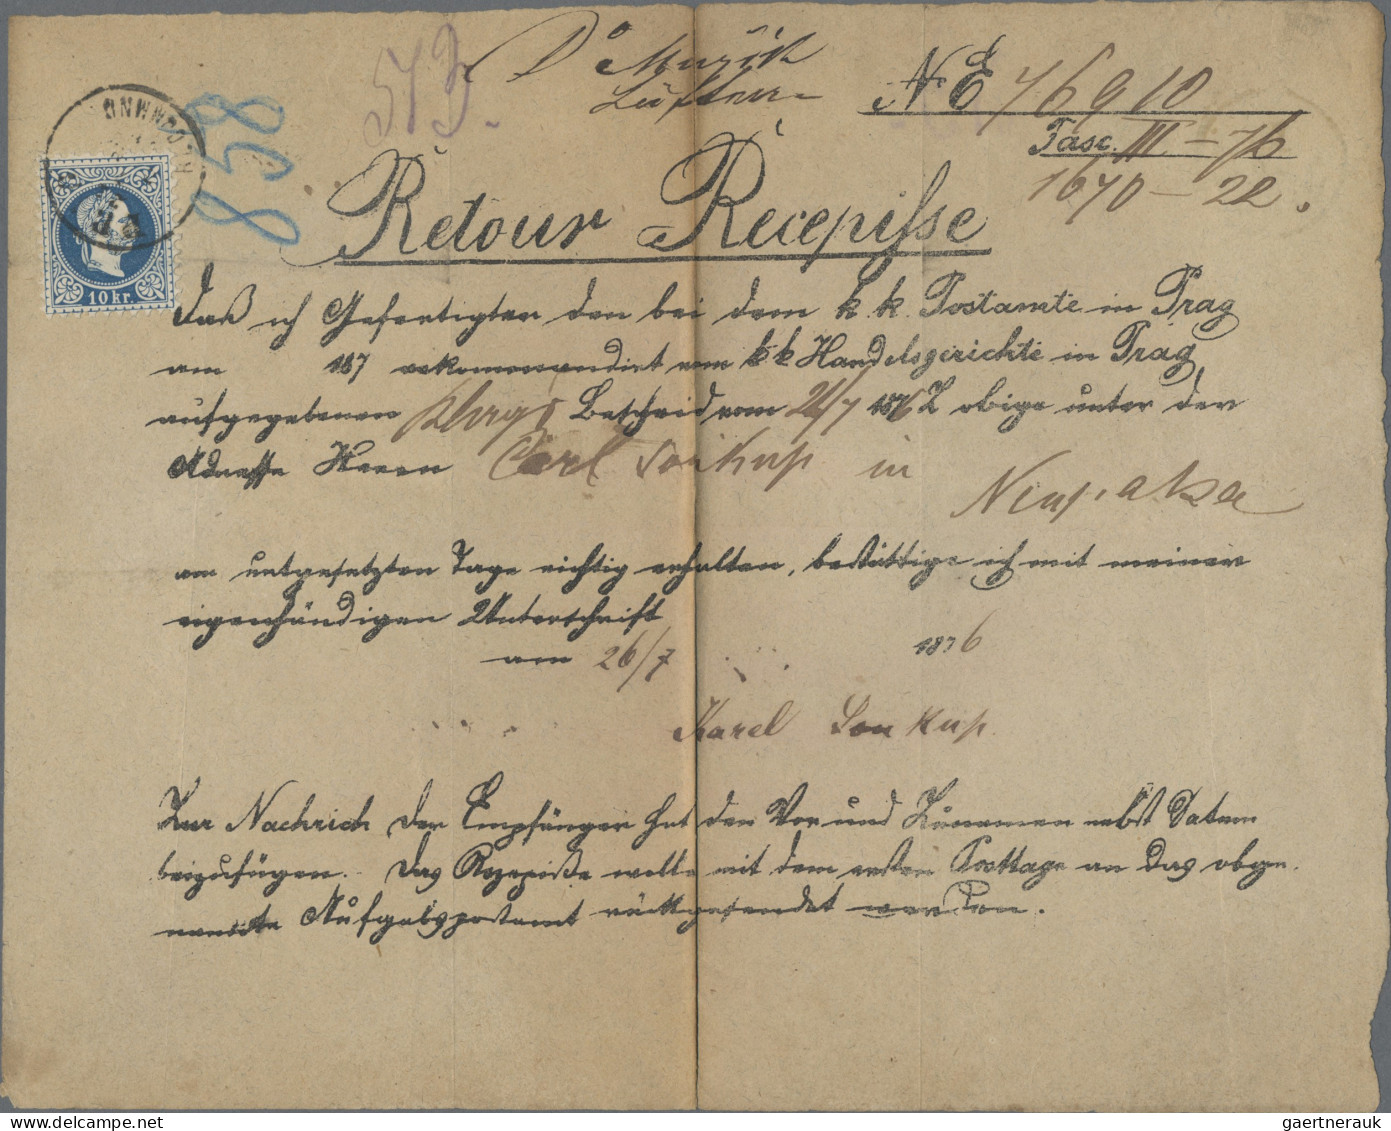 573.
858
Dr Muzik
N. E 76910
Fasc. III – 76
1670 – 22.
Retour Recepisse
10 kr.
Daß ich Gefertigter den bei dem k. k. Postamte in Prag
am 187 rekommandirt vom k k Handelsgerichte in Prag
aufgegebenen Klags Bescheid vom 24/7 1876 Z obige unter der
Adresse Herrn Carl Soukup in
Neupaka
am untgesetzten Tage richtig erhalten, bestättige ich mit meiner
eigenhändigen Unterschrift
am 26/7 1876
Karel Soukup.
Zur Nachrich der Empfänger hat den Vor und Zunamen nebst Datum
beizufügen. Das Rezepiße wolle mit dem ersten Posttage an das obge
nannte Aufgabspostamt rückgesendet werden.
gaertnerauk